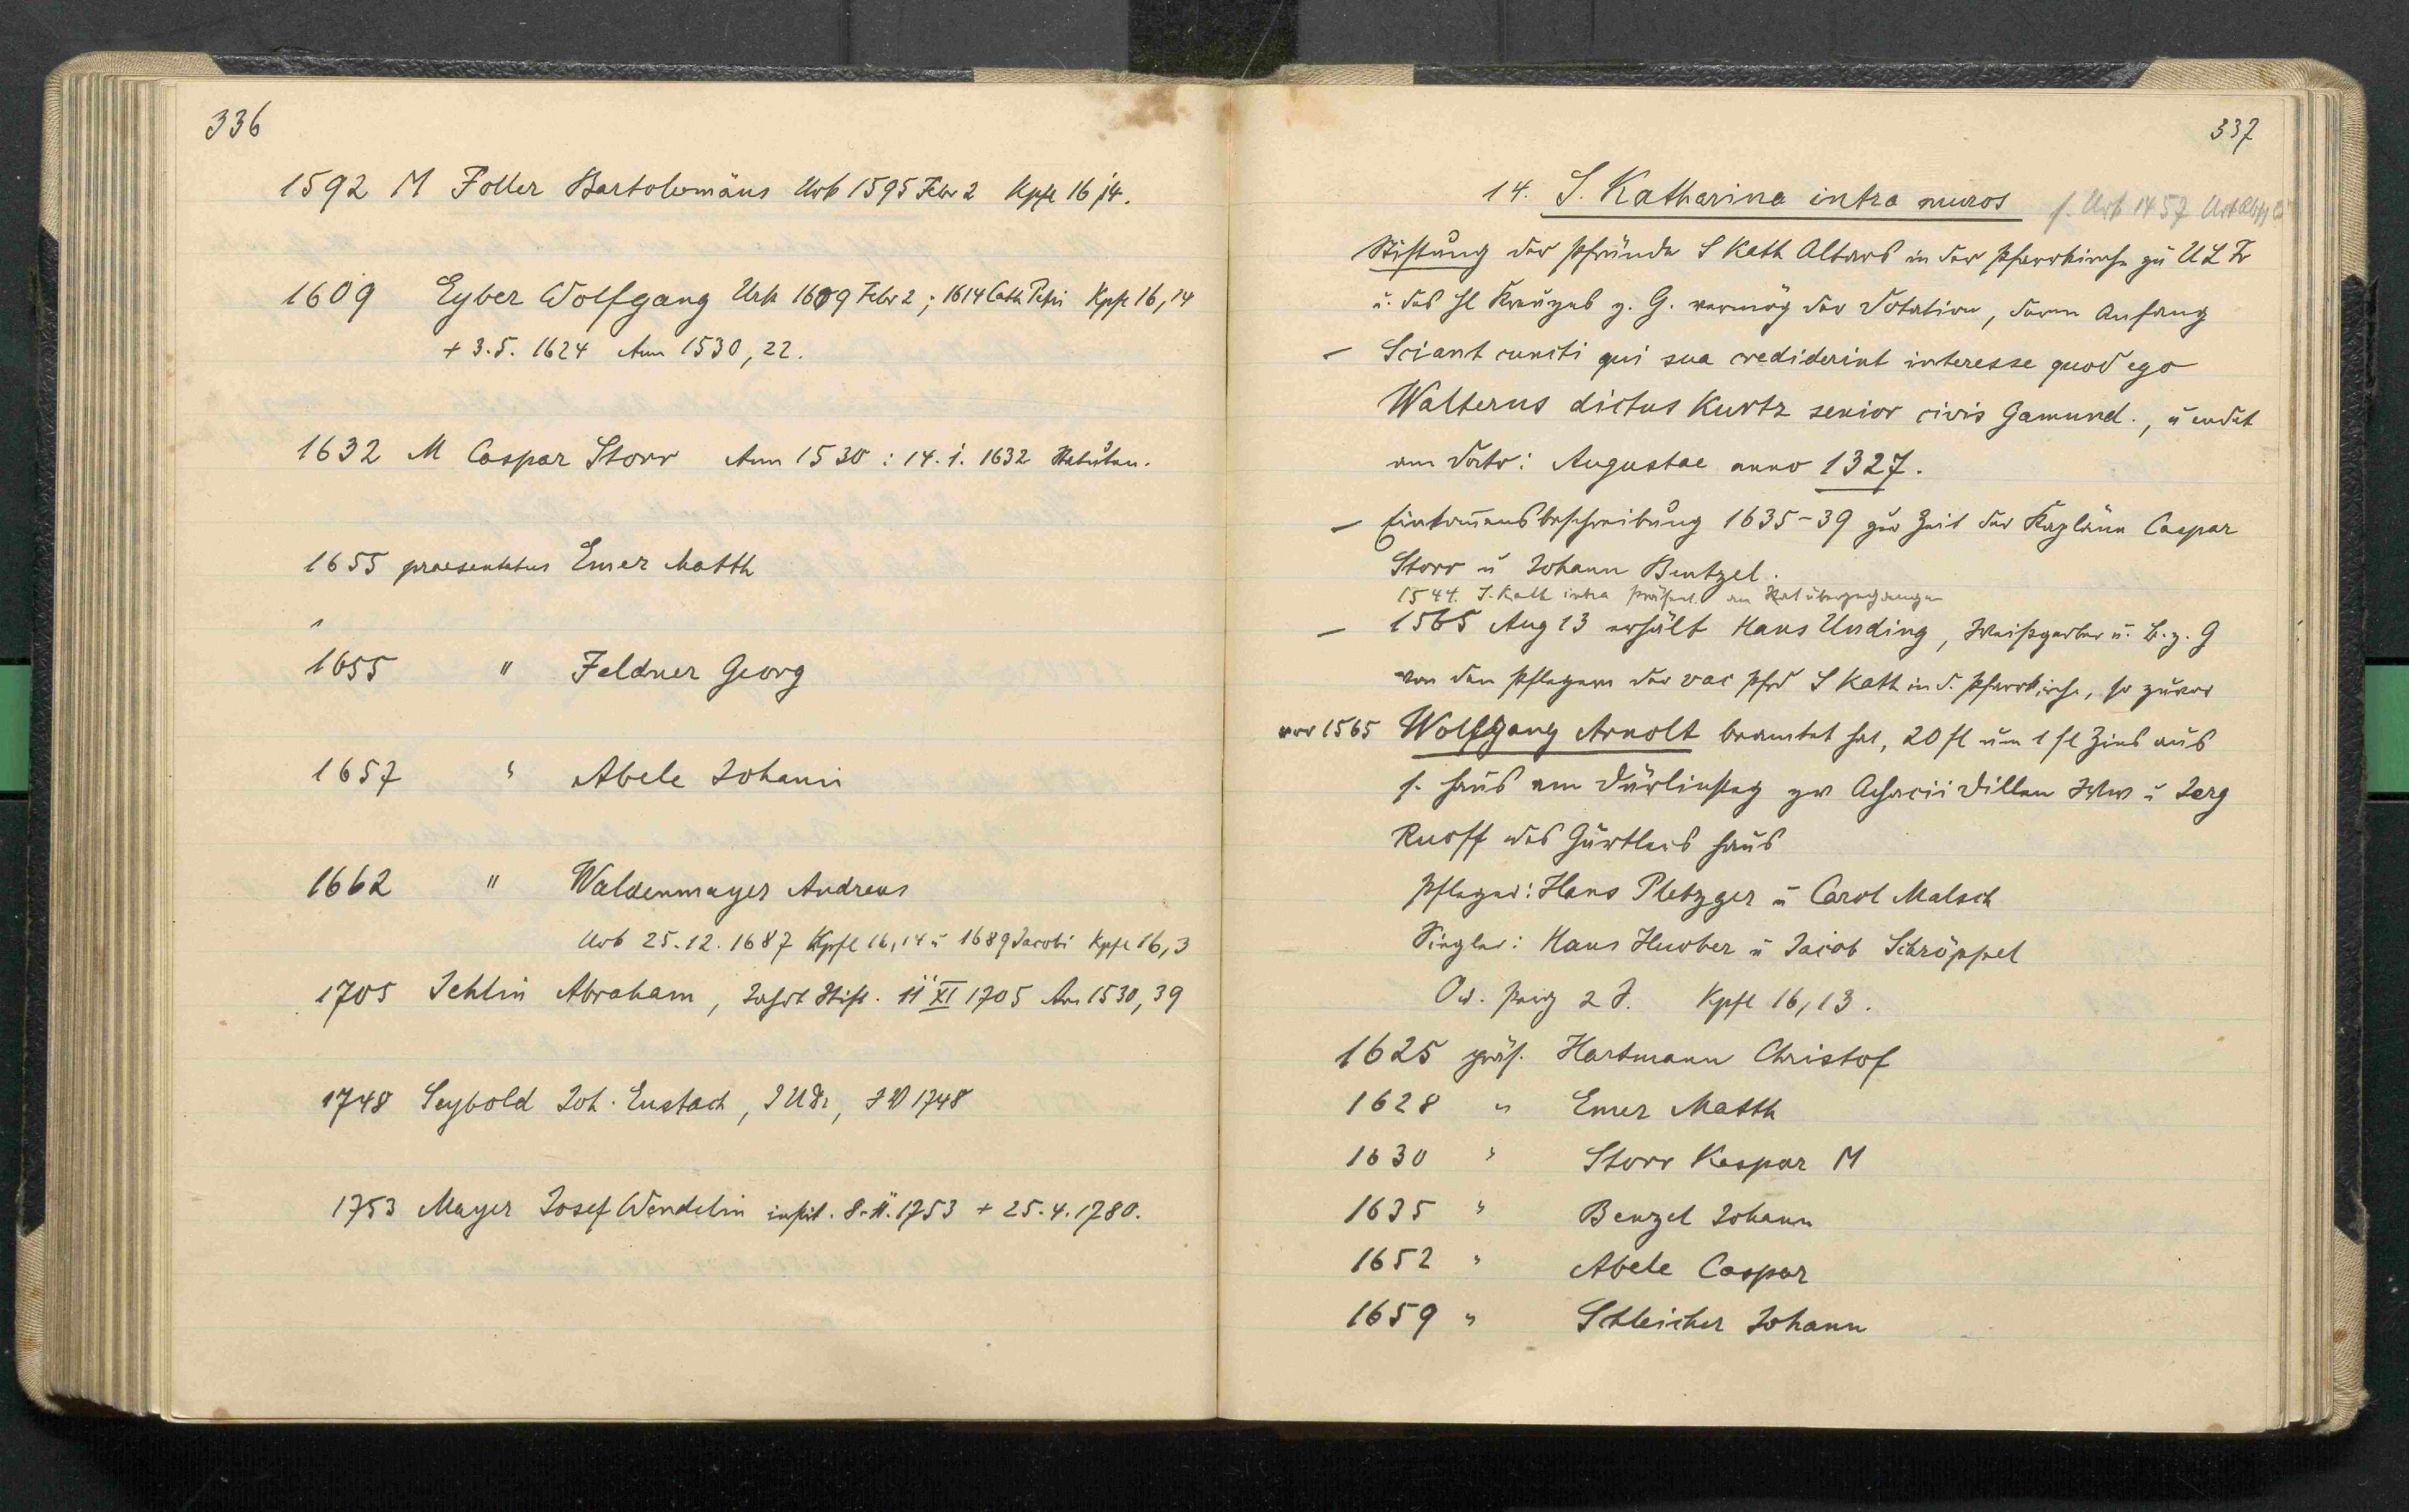 336
1592 M Foller Bartolomäus Urk 1595 Febr 2 Kpfl 16,14.
1609 Eyber Wolfgang Urk 1609 Febr 2; 1614 Cath Petri Kpfl 16,14
+ 3.5. 1624 Ann 1530, 22.
1632 M Caspar Storr Ann 1530 : 14. 1. 1632 Statuten.
1655 praesentatus Emer Matth
1655 " Feldner Georg
1657 " Abele Johann
1662 " Waldenmayer Andreas
Urk 25.12. 1687 Kpfl 16,14 u 1689 Jacobi Kpfl 16,3
1705 Jehlin Abraham, Jahrt Stift. 11 XI 1705 An 1530, 39
1748 Seybold Joh. Eustach, JUDr, 1748
1753 Mayer Josef Wendelin instit. 8.11.1753 + 25.4.1780.
337
14. S. Katharina intra muros s. Urk 1457
Stiftung der Pfründe S Kath Altars in der Pfarrkirche zu ULFr
u. des hl Kreuzes z. G. vermög der Dotation, deren Anfang
– Sciant cuncti qui sua crediderint interesse quod ego
Walterus dictus Kurtz senior civis Gamund., u endet
am Dato: Augustae anno 1327.
– Einkom̄ensbeschreibung 1635–39 zur Zeit der Kapläne Caspar
Storr u Johann Bentzel.
1544. S. Kath intra Präsent. an Rat übergegangen
– 1565 Aug 13 erhält Hans Unding, Weißgerber u. B. z. G
von den Pflegern der vac Pfrd S Kath in d. Pfarrkirche, so zuvor
vor 1565 Wolfgang Arnolt beamtet hat, 20 fl um 1 fl Zins aus
s. Haus am Türlinsteg zw Achacii Dillen Wtw u Jerg
Ruoff des Gürtlers Haus
Pfleger: Hans Pletzger u Carol Malsch
Siegler: Hans Huober u Jacob Schröppel
Or. Perg 2 S. Kpfl 16, 13.
1625 präs. Hartmann Christof
1628 " Emer Matth
1630 " Storr Kaspar M
1635 " Benzel Johann
1652 " Abele Caspar
1659 " Schleicher Johann